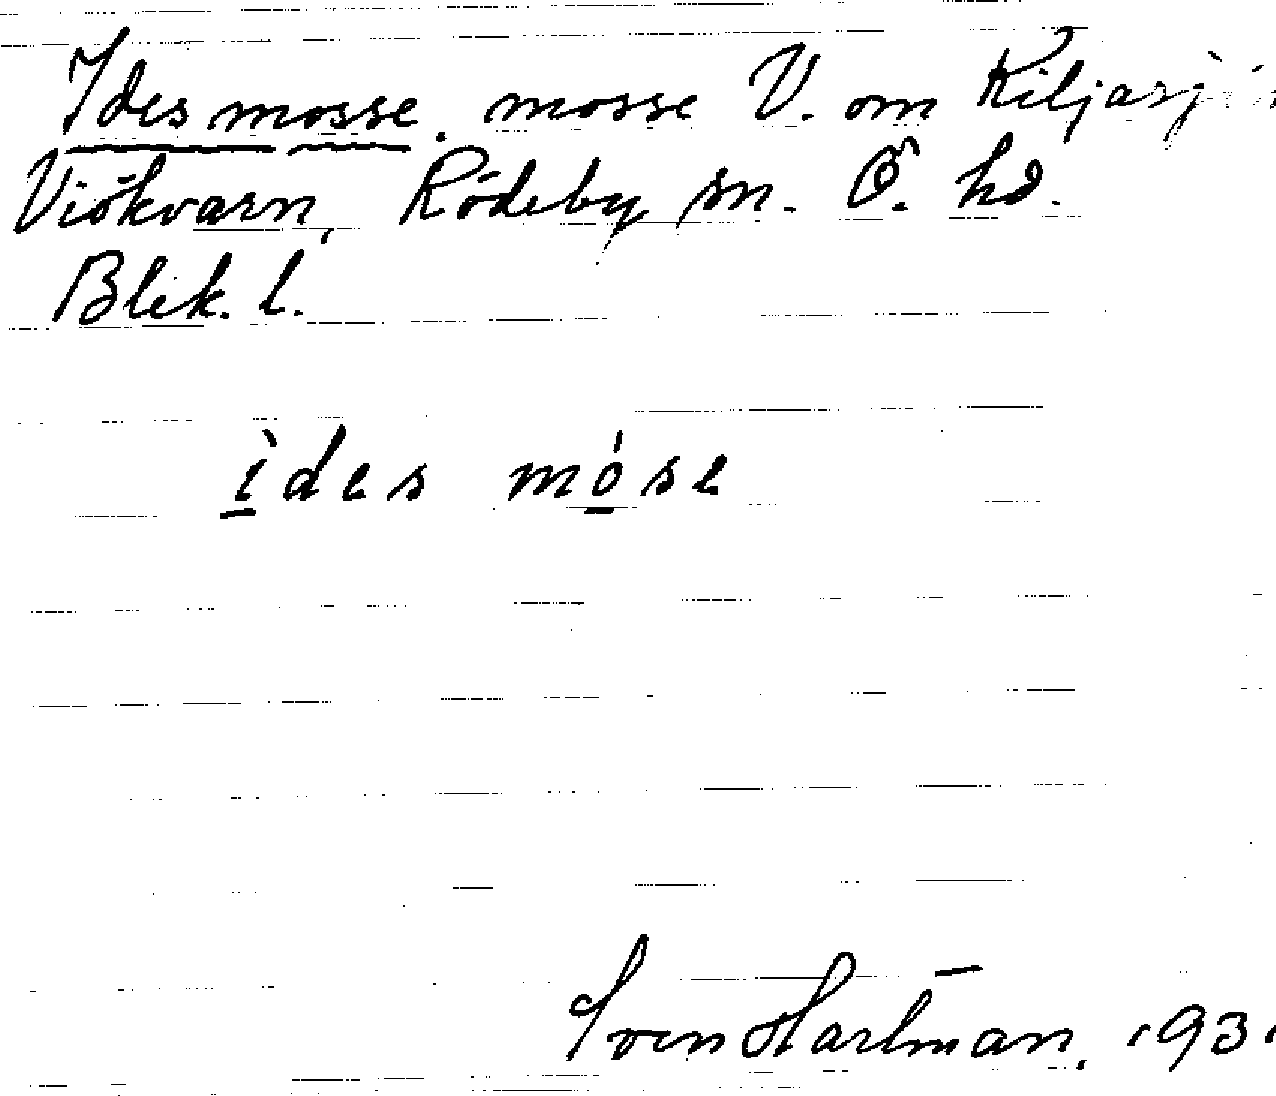 Idesmosse. mosse V. om Kiljasjön
Viökvarn, Rödeby sn. Ö. hd.
Blek. l.
ìdes móse
Sven Hartman. 193